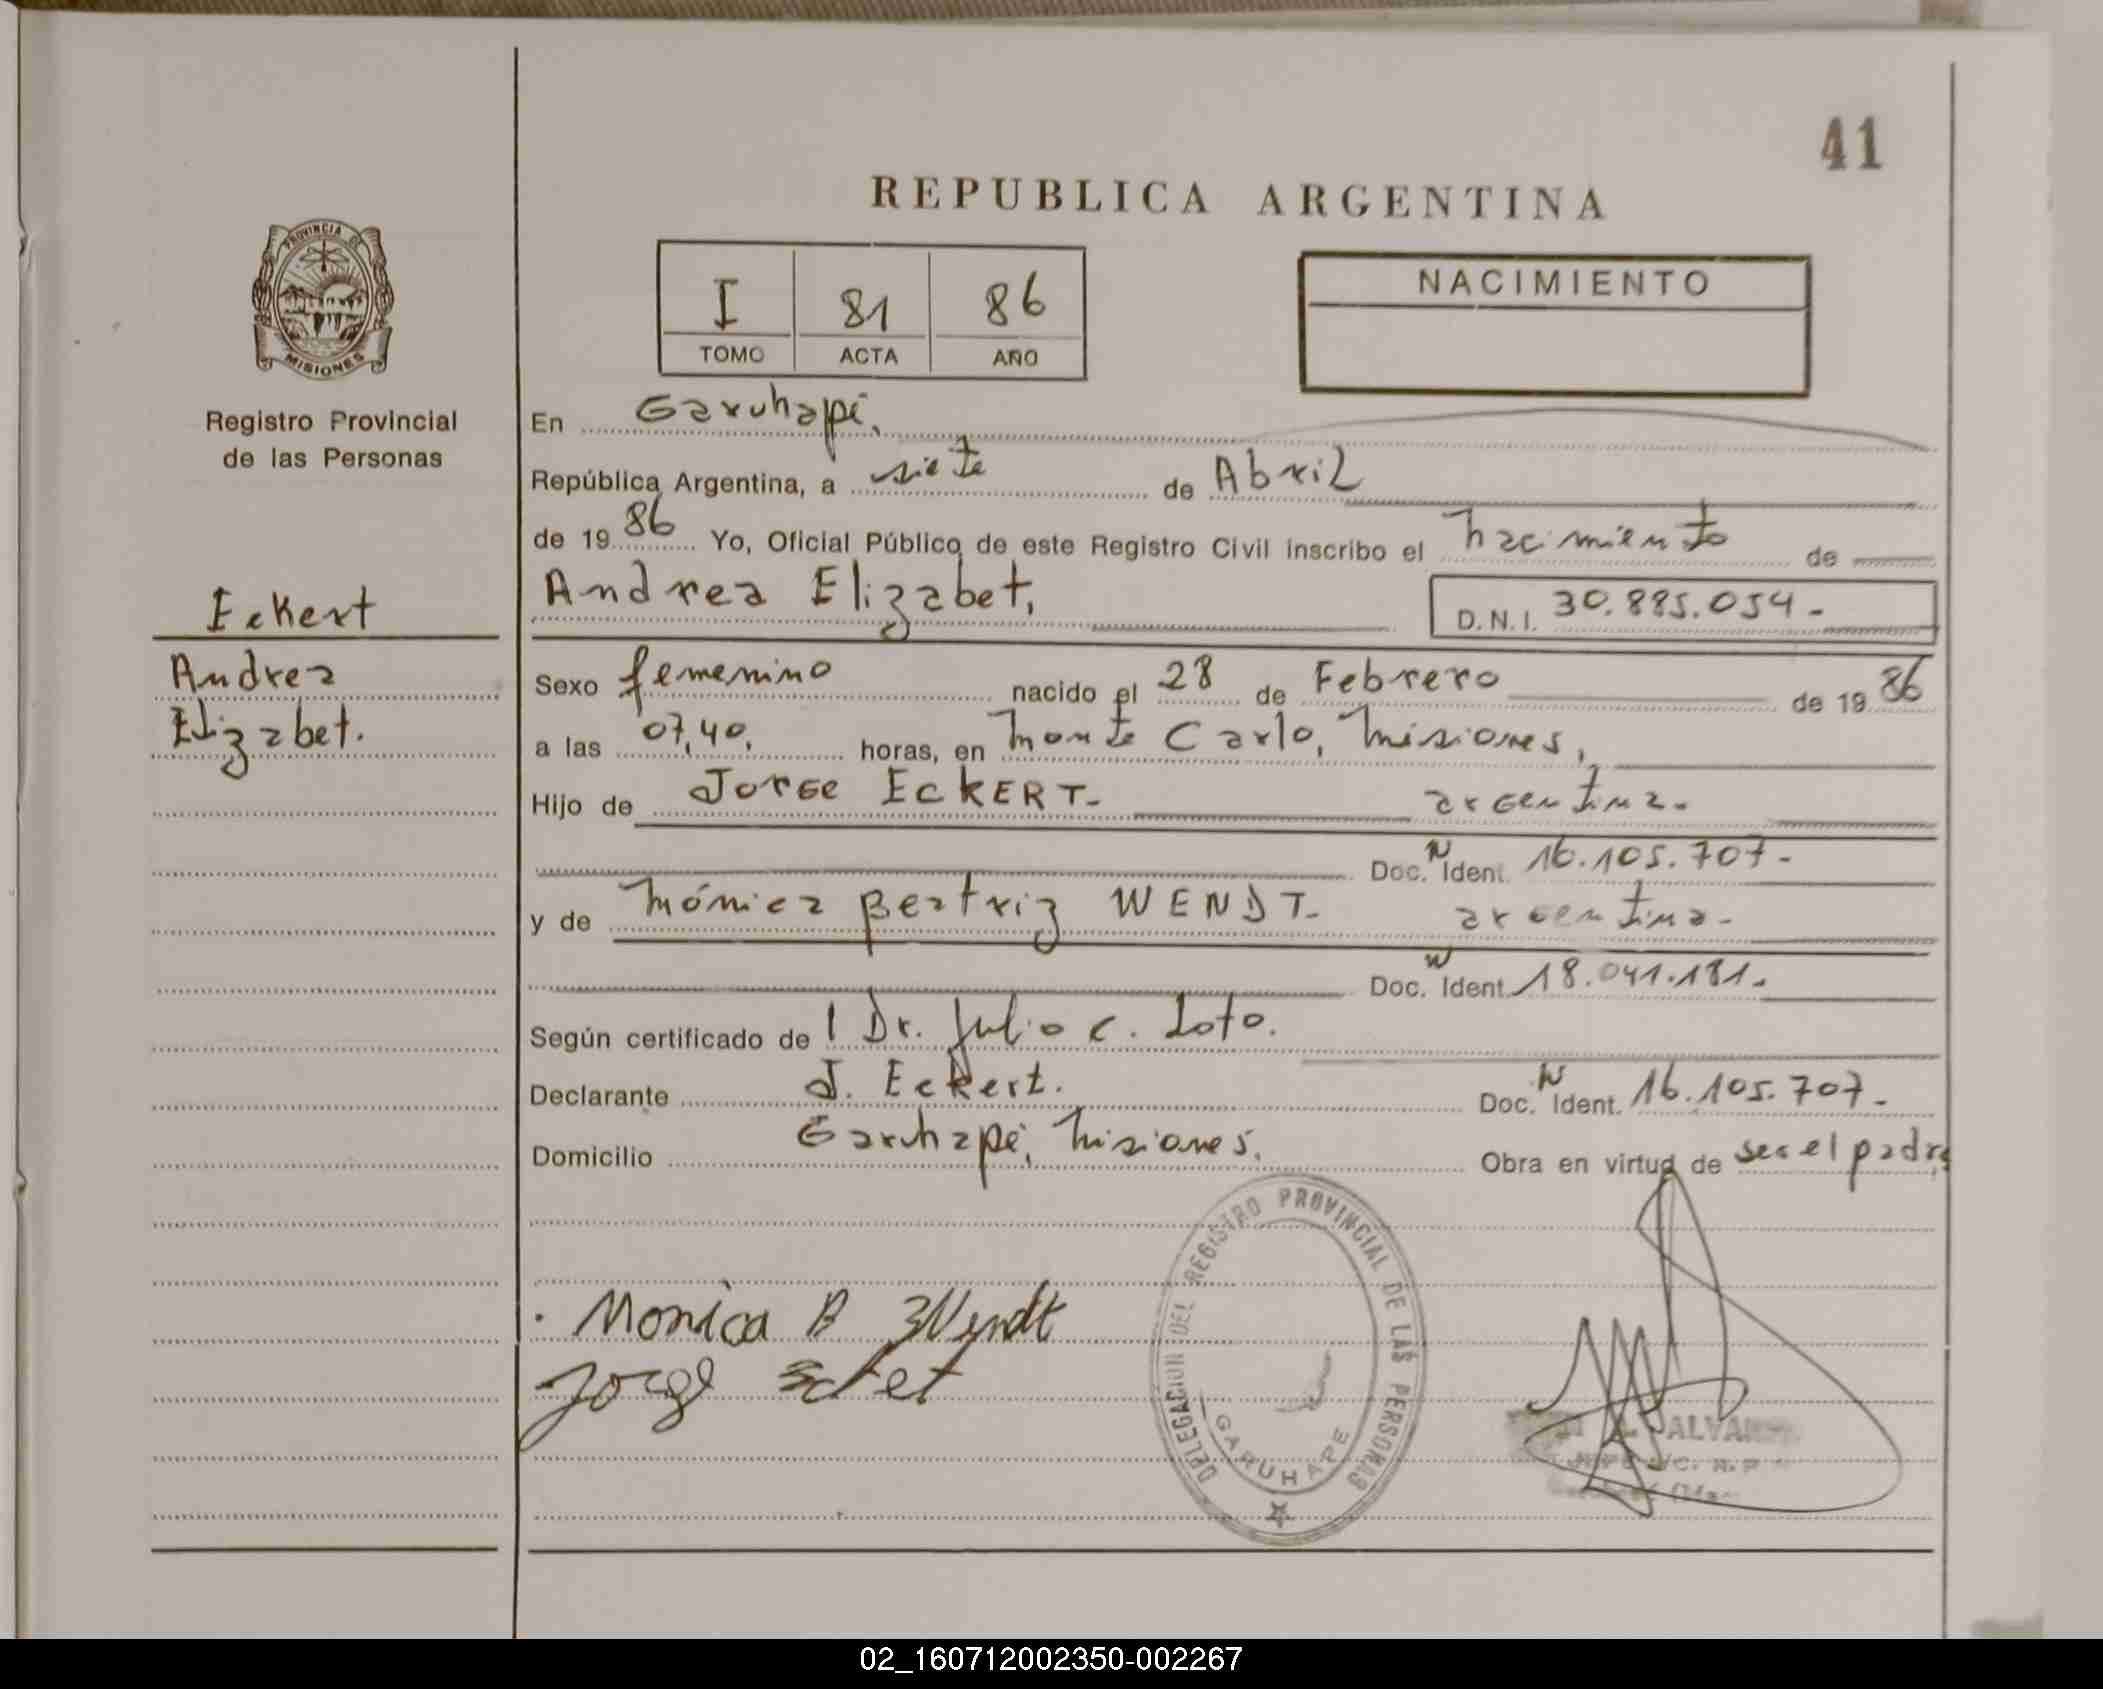 41
REPUBLICA ARGENTINA
PROVINCIA DE
MISIONES
Registro Provincial
de las Personas
I 81 86
TOMO ACTA AÑO
NACIMIENTO
En Garuhapé,
República Argentina, a siete de Abril
de 1986 Yo, Oficial Público de este Registro Civil inscribo el nacimiento de
Andrea Elizabet,
D.N.I. 30.885.054-
Eckert
Andrea
Elizabet.
Sexo femenino nacido el 28 de Febrero de 1986
a las 07,40, horas, en Monte Carlo, Misiones,
Hijo de Jorge ECKERT- argentina-
Doc. N Ident. 16.105.707-
y de Mónica Beatriz WENDT- argentina-
Doc. N Ident. 18.041.181-
Según certificado de l Dr. Julio C. Loto.
Declarante J. Eckert. Doc. N Ident. 16.105.707-
Domicilio Garuhapé, Misiones. Obra en virtud de ser el padre
Monica B Wendt
Jorge
DELEGACION DEL REGISTRO PROVINCIAL DE LAS PERSONAS
GARUHAPE
02_160712002350-002267